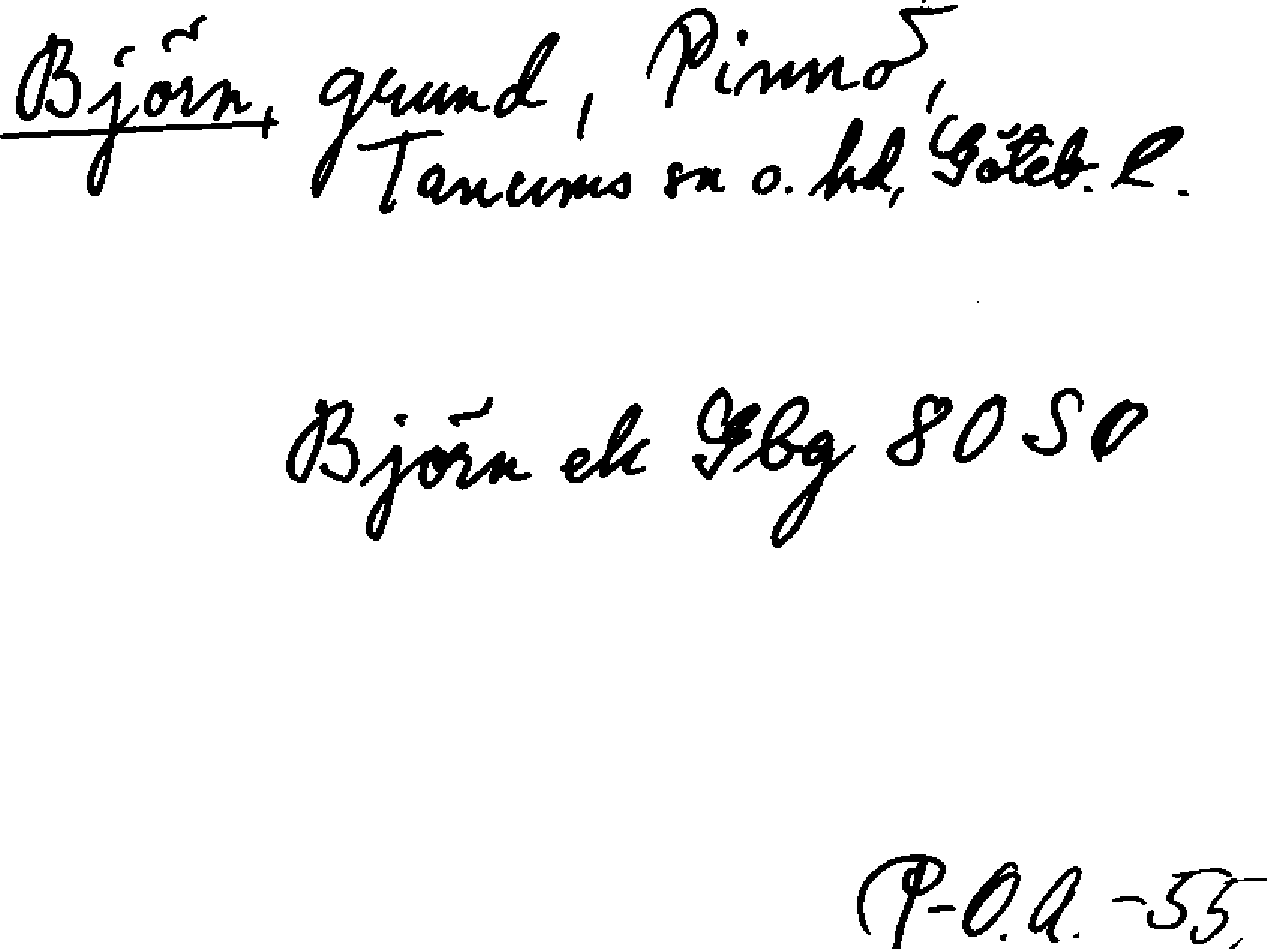 Björn, grund, Pinnö,
Tanums sn o. hd, Göteb. l.
Björn ek Gbg 80 SO
P-O.A. -55.